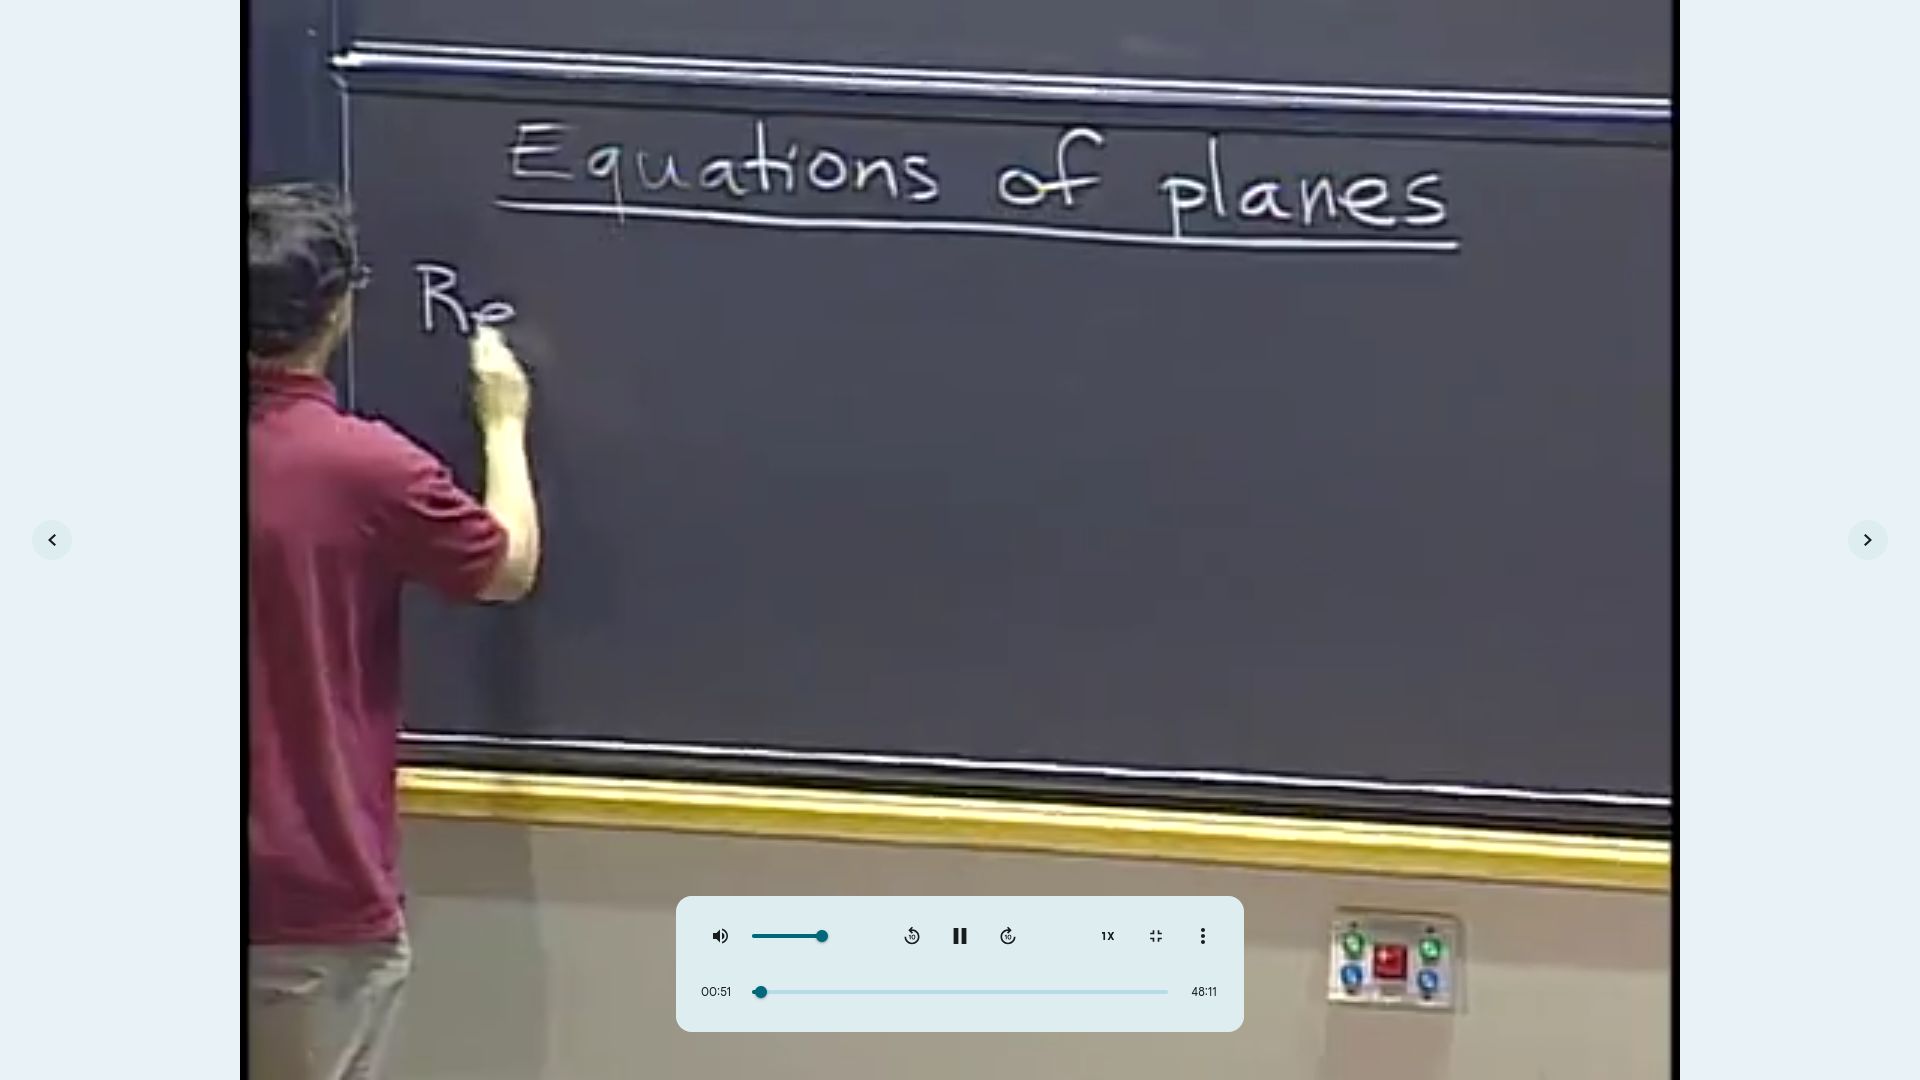 Equations of planes
Re
1X
00:51
48:11